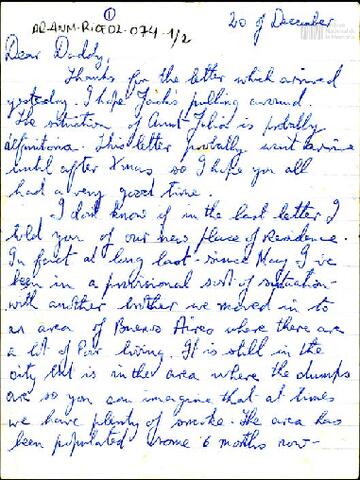 ①
AR-ANM-RICE02-074-1/2
20 of December
Dear Daddy,
Thanks for the letter which arrived
yesterday. I hope Jack's pulling around.
The situation of Aunt Julia is probably
definitoria. This letter probally won't arrive
until after Xmas so I hope you all
had a very good time.
I don't know if in the last letter I
told you of our new place of Residence.
In fact at long last - since May I've
been in a provisional sort of situation -
with another brother we moved in to
an area of Buenos Aires where there are
a lot of Poor living. It is still in the
city but is in the area where the dumps
are so you can imagine that at times
we have plenty of smoke. The area has
been populated some 6 months now -